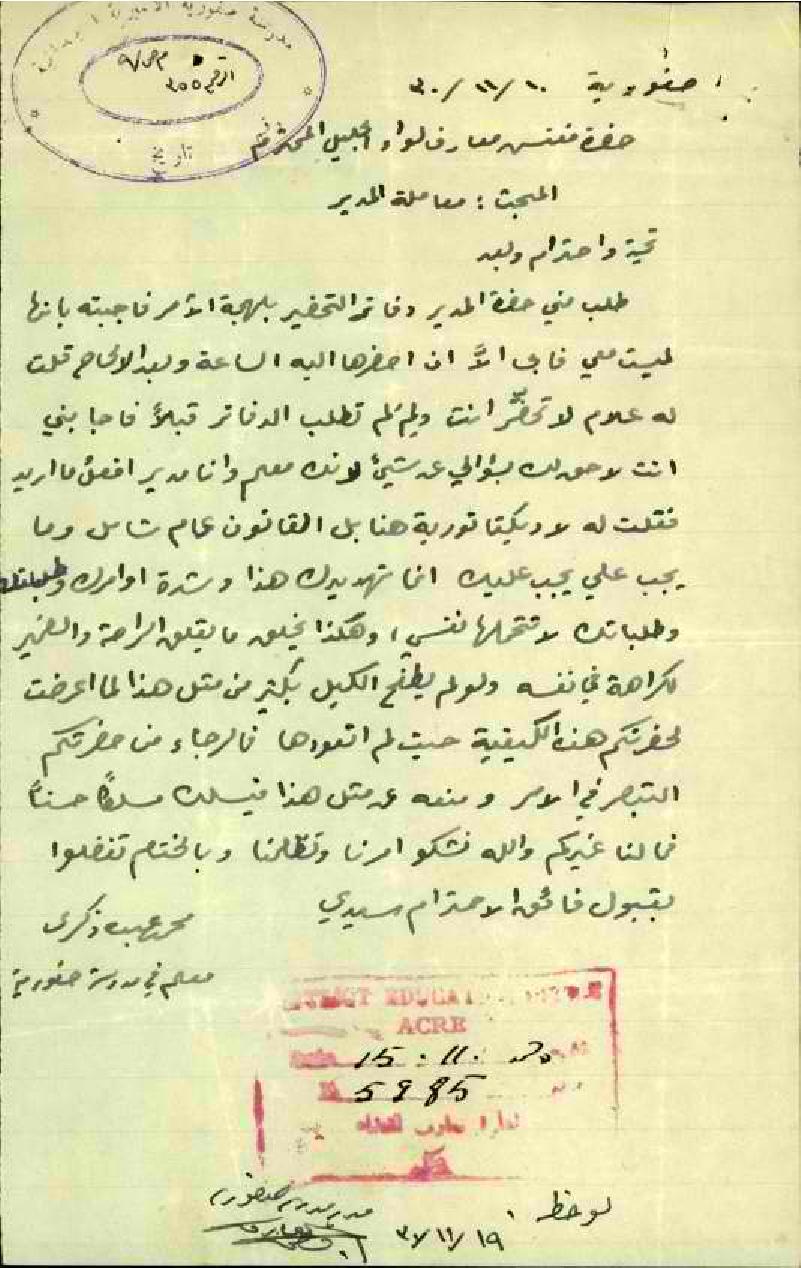 مدرسة صفورية الاميرية
م ص/٩
الرقم ٣٥٥
تاريخ
صفورية ١٠/١١/٣٠
حضرة مفتش معارف لواء الجليل المحترم
المبحث : معاملة المدير
تحية واحترام وبعد
طلب مني حضرة المدير دفاتر التحضير بلهجة الآمر فاجبته بانها
ليست معي فابى الاَّ ان احضرها اليه الساعة وبعد الالحاح قلت
له علام لا تحضّر انت ولِمَ لم تطلب الدفاتر قبلاً فاجابني
انت لا حق لك بسؤالي عن شيئ لانك معلم وانا مدير افعل ما اريد
فقلت له لا ديكتاتورية هنا بل القانون عام شامل وما
يجب علي يجب عليك انما تهديدك هذا وشدة اوامرك وطلباتك
وطلباتك لا تتحملها نفسي، وهكذا يخلق ما يقلق الراحة والضمير
لكراهة في نفسه ولو لم يطفح الكيل بكثير من مثل هذا لما اعرضت
لحضرتكم هذه الكيفية حيث لم اتعودها فالرجاء من حضرتكم
التبصر في الامر ومنعه عن مثل هذا فيسلك مسلكاً حسناً
فما لنا غيركم والله نشكو امرنا وتظلمنا وبالختام تفضلوا
بقبول فائق الاحترام سيدي
محمد
معلم في مدرسة صفورية
DISTRICT EDUCATION OFFICE
ACRE
Date 15.11.30
No 5985
عكا
لوحظ
مدير مدرسة صفورية
١٩/١١/٣٠